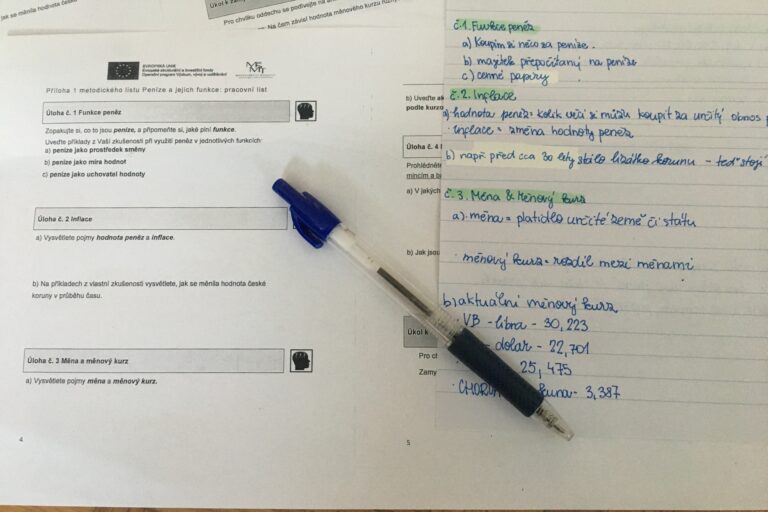 jak se měnila hodnota české
Úkol k
Pro chvilku oddechu se podívejte na
Na čem závisí hodnota měnového kurzu
EVROPSKÁ UNIE
Evropské strukturální a investiční fondy
Operační program Výzkum, vývoj a vzdělávání
Příloha 1 metodického listu Peníze a jejich funkce: pracovní list
Úloha č. 1 Funkce peněz
Zopakujte si, co to jsou peníze, a připomeňte si, jaké plní funkce.
Uveďte příklady z Vaší zkušenosti při využití peněz v jednotlivých funkcích:
a) peníze jako prostředek směny
b) peníze jako míra hodnot
c) peníze jako uchovatel hodnoty
Úloha č. 2 Inflace
a) Vysvětlete pojmy hodnota peněz a inflace.
b) Na příkladech z vlastní zkušenosti vysvětlete, jak se měnila hodnota české
koruny v průběhu času.
Úloha č. 3 Měna a měnový kurz
a) Vysvětlete pojmy měna a měnový kurz.
4
b) Uveďte
podle kurzo
Úloha č. 4
Prohlédněte
mincím a b
a) V jakých
b) Jak jsou
Úkol k
Pro ch
Zamy
5
č.1. Funkce peněz
a) Koupím si něco za peníze.
b) majitele přepočítaný na peníze
c) cenné papíry
č.2. Inflace
a) hodnota peněz = kolik věcí si můžu koupit za určitý obnos p
inflace = změna hodnoty peněz
b) např. před cca 30 lety stálo lízátko korunu - teď stojí
č.3. Měna & Měnový kurz
a) měna = platidlo určité země či státu
měnový kurz = rozdíl mezi měnami
b) aktuální měnový kurz
VB - libra - 30,223
= dolar - 22,701
25,475
CHORV kuna - 3,387